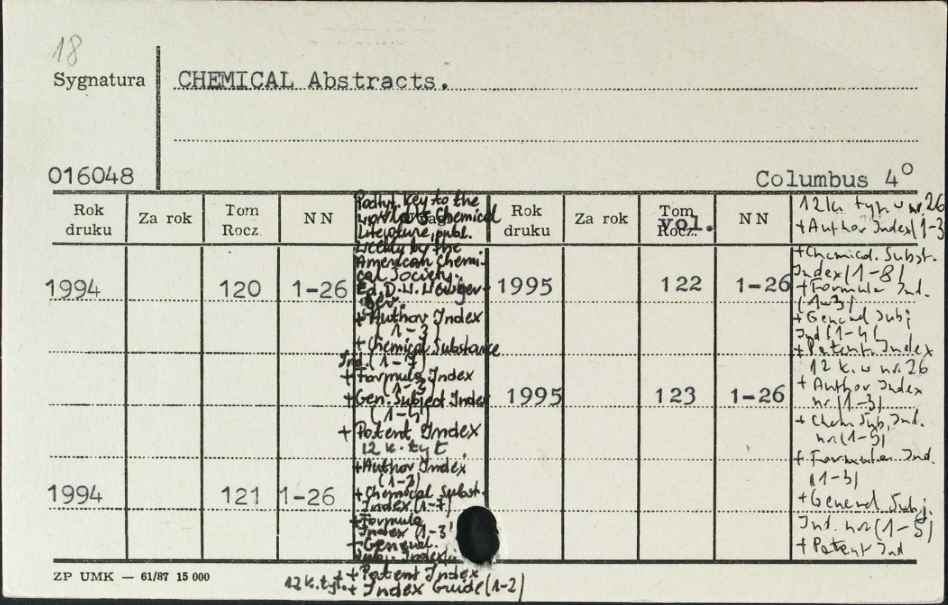 18
Sygnatura
CHEMICAL Abstracts.
016048
Columbus 4°
Rok druku
Za rok
Tom Rocz.
NN
Rok druku
Za rok
Tom Rocz.
vol.
NN
1994 120 1-26
Podtyt. Key to the
world's Chemical
Literature, publ.
weekly by the
American Chemi-
cal Society.
Ed. D.H.
+ Author Index
(1-3)
+ Chemical Substance
Ind. (1-7)
+ Formula Index
(1-3)
+ Gen. Subject Index
(1-4)
+ Patent Index
12 k. tyt.
1994 121 1-26
+ Author Index
(1-2)
+ Chemical Subst.
Index (1-7)
+ Formula
Index (1-3)
+ General.
Subj. Index
+ Patent Index
12 k. tyt. + Index Guide (1-2)
1995 122 1-26
12 k. tyt. w nr. 26
+ Author Index (1-3)
+ Chemical. Subst.
Index (1-8)
+ Formula Ind.
(1-3)
+ General Subj
Ind (1-4)
+ Patent. Index
1995 123 1-26
12 k. w nr. 26
+ Author Index
nr (1-3)
+ Chem Sub. Ind.
nr (1-5)
+ Formula Ind.
(1-3)
+ General Subj.
Ind. nr (1-5)
+ Patent Ind
ZP UMK — 61/87 15 000